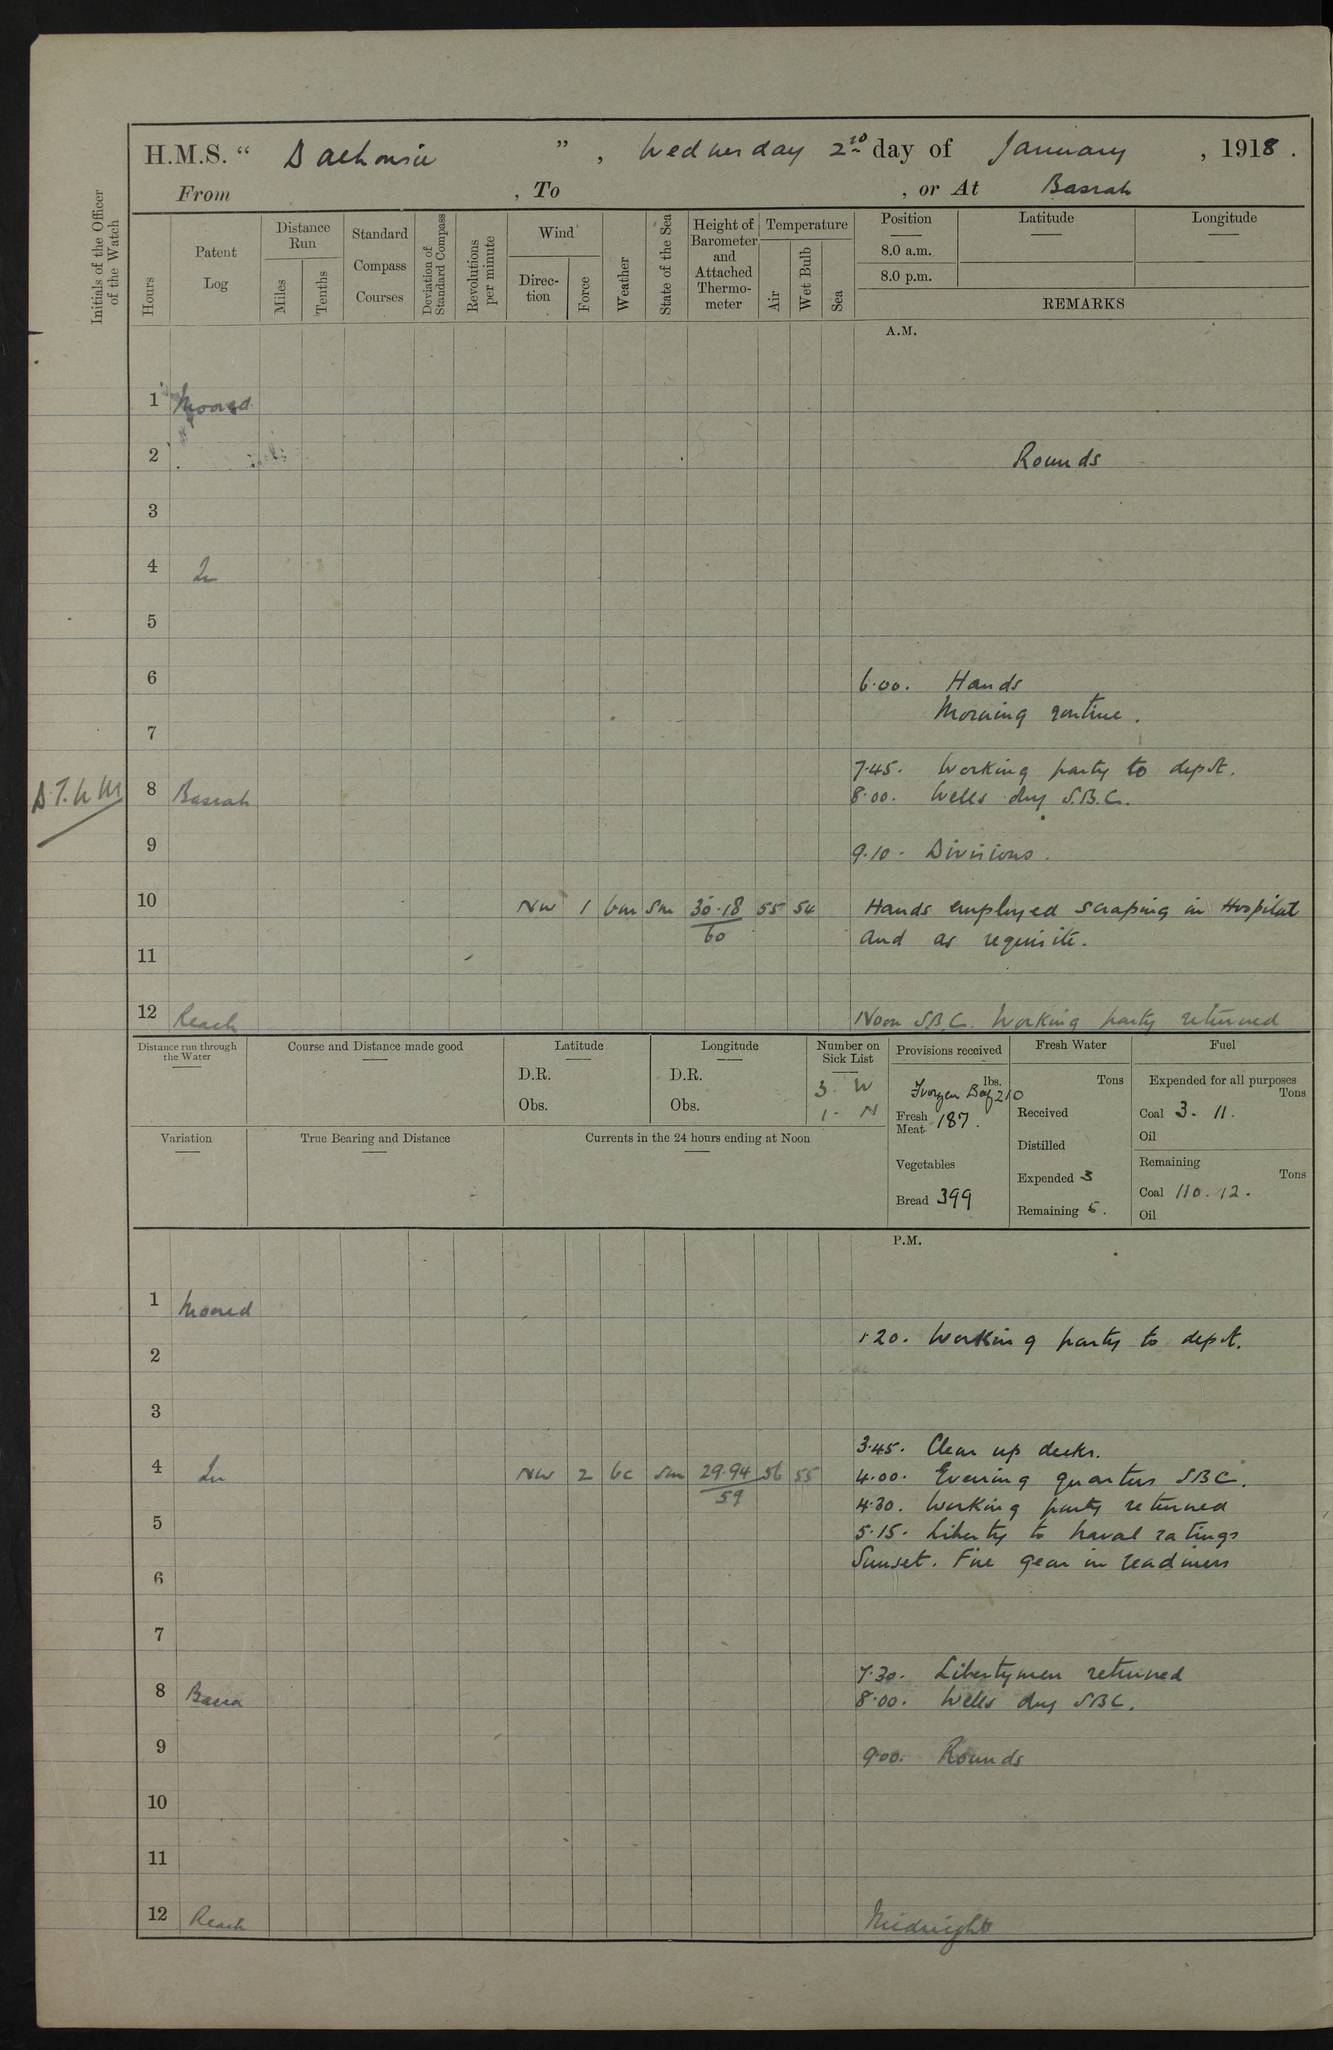 H.M.S. “ Dalhousie ” , Wednesday 2nd day of January , 1918 .
From , To , or At Basrah
Initials of the Officer of the Watch
Hours
Patent Log
Distance Run
Miles
Tenths
Standard Compass Courses
Deviation of Standard Compass
Revolutions per minute
Wind
Direction
Force
Weather
State of the Sea
Height of Barometer and Attached Thermometer
Temperature
Air
Wet Bulb
Sea
Position
8.0 a.m.
8.0 p.m.
Latitude
Longitude
REMARKS
A.M.
1 Moored
2 Rounds
3
4 In
5
6 6.00. Hands
Morning routine.
7
7.45. Working party to depôt.
8 Basrah 8.00. Wells dry S.B.C.
9 9.10. Divisions.
10 NW 1 bm sm 30.18 55 54 Hands employed scraping in Hospital
60 and as requisite.
11
12 Reach Noon SBC. Working party returned
Distance run through the Water
Course and Distance made good
Latitude
D.R.
Obs.
Longitude
D.R.
Obs.
Number on Sick List
3. W
1. N
Provisions received
lbs.
Bag 210
Fresh Meat 187.
Vegetables
Bread 399
Fresh Water
Tons
Received
Distilled
Expended 3
Remaining 5.
Fuel
Expended for all purposes
Tons
Coal 3. 11.
Oil
Remaining
Tons
Coal 110. 12.
Oil
Variation
True Bearing and Distance
Currents in the 24 hours ending at Noon
P.M.
1 Moored
1.20. Working party to depôt.
2
3
3.45. Clear up decks.
4 In NW 2 bc sm 29.94 56 55 4.00. Evening quarters SBC.
59 4.30. Working party returned
5 5.15. Liberty to Naval ratings
Sunset. Fire gear in readiness
6
7
7.30. Libertymen returned
8 Basra 8.00. Wells dry SBC.
9 9.00. Rounds
10
11
12 Reach Midnight